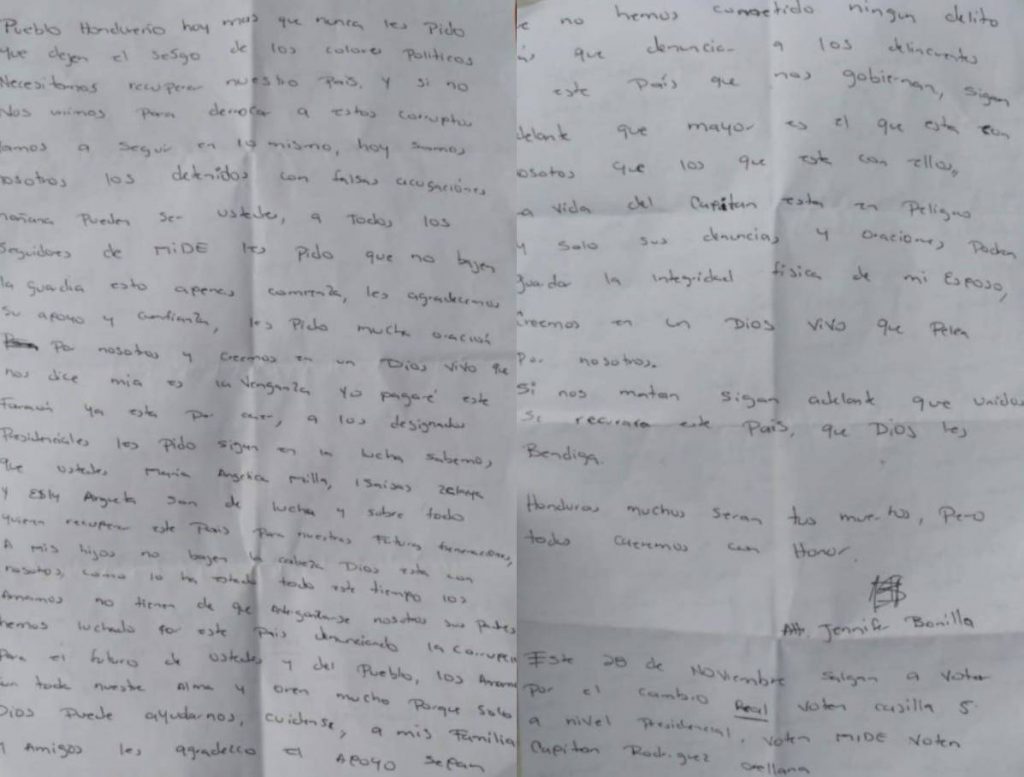 Pueblo Hondureño hoy mas que nunca les Pido
que dejen el sesgo de los colores Politicos
Necesitamos recuperar nuestro País, y si no
Nos unimos para derrocar a estos corruptos
Vamos a seguir en lo mismo, hoy somos
nosotros los detenidos con falsas acusaciónes
mañana Pueden ser ustedes, a Todos los
Seguidores de MiDE les Pido que no bajen
la guardia esto apenas comienza, les agradecemos
su apoyo y confianza, les Pido mucha oración
Por nosotros y creemos en un Dios vivo que
nos dice mia es la Venganza Yo pagaré este
Faraón ya esta por caer, a los designados
Presidenciales les pido sigan en la lucha sabemos,
que ustedes Maria Angelica milla, Isaias Zelaya
y Esly Argueta son de lucha y sobre todo
quieren recuperar este País Para nuestras Futuras Generaciones,
A mis hijos no bajen la cabeza Dios esta con
nosotos, como lo ha estado todo este tiempo los
Amamos no tienen de que nosotros sus Padres
hemos luchado por este País denunciando la Corrupcion
Para el futuro de ustedes y del Pueblo, los Amamos
con toda nuestra Alma y oren mucho Porque solo
Dios Puede ayudarnos, cuidense, a mis Familia
y Amigos les agradezco el Apoyo sepan
e no hemos cometido ningun delito
s que denunciar a los delincuentes
este País que nos gobiernan, sigan
delante que mayor es el que esta con
osotos que los que esta con ellos,
a vida del Capitan esta en Peligro
y solo sus denuncias y oraciones Podran
guardar la integridad física de mi Esposo,
Creemos en un Dios vivo que Pelea
Por nosotros.
Si nos matan sigan adelante que unidos
se recurara este País, que Dios les
Bendiga.
Honduras muchos seran tus muertos, Pero
todos caeremos con Honor.
Att. Jennifer Bonilla
Este 28 de Noviembre salgan a Votar
por el cambio Real voten casilla 5
a nivel Presidencial, voten MIDE voten
Capitan Rodriguez orellana